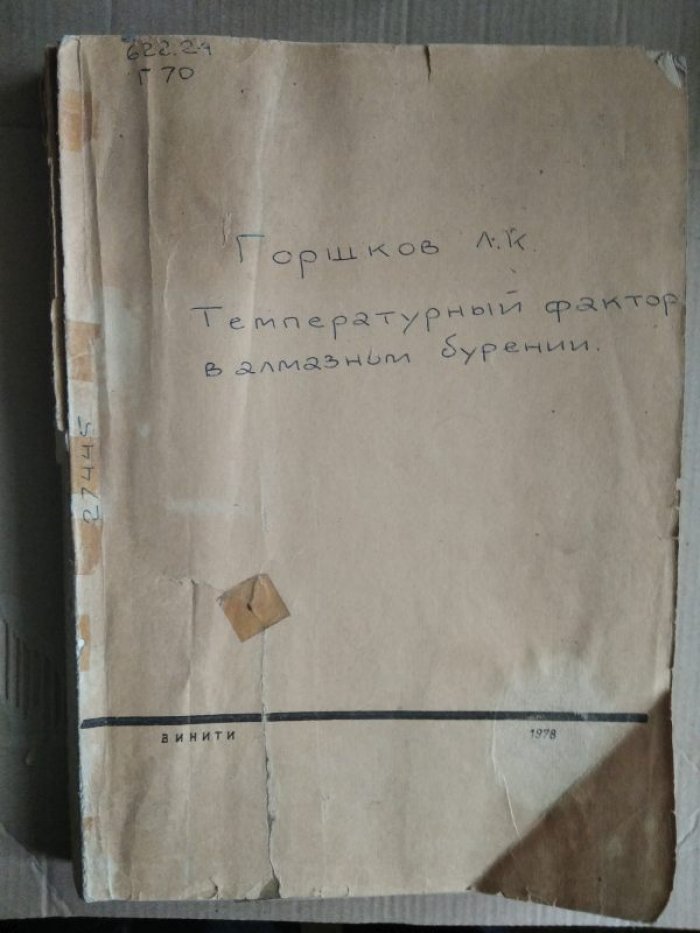 622.24
Г 70
Горшков Л.К.
Температурный фактор
в алмазным бурении.
27445
ВИНИТИ
1978